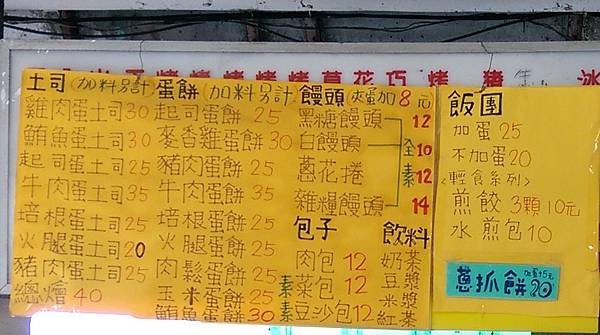 烤 蔥 花 巧 烤 豬 冰
土司(加料另計)
雞肉蛋土司30
鮪魚蛋土司30
起司蛋土司25
牛肉蛋土司35
培根蛋土司25
火腿蛋土司20
豬肉蛋土司25
總燴40
蛋餅(加料另計)
起司蛋餅25
麥香雞蛋餅30
豬肉蛋餅25
牛肉蛋餅35
培根蛋餅25
火腿蛋餅25
肉鬆蛋餅25
玉米蛋餅25素
鮪魚蛋餅30素
饅頭 夾蛋加8元
黑糖饅頭12
白饅頭10
蔥花捲12
雜糧饅頭14
全素
包子
肉包12
菜包12
豆沙包12
飲料
奶茶
豆漿
米漿
紅茶
飯團
加蛋25
不加蛋20
<輕食系列>
煎餃3顆10元
水煎包10
蔥抓餅20
加蛋+5元